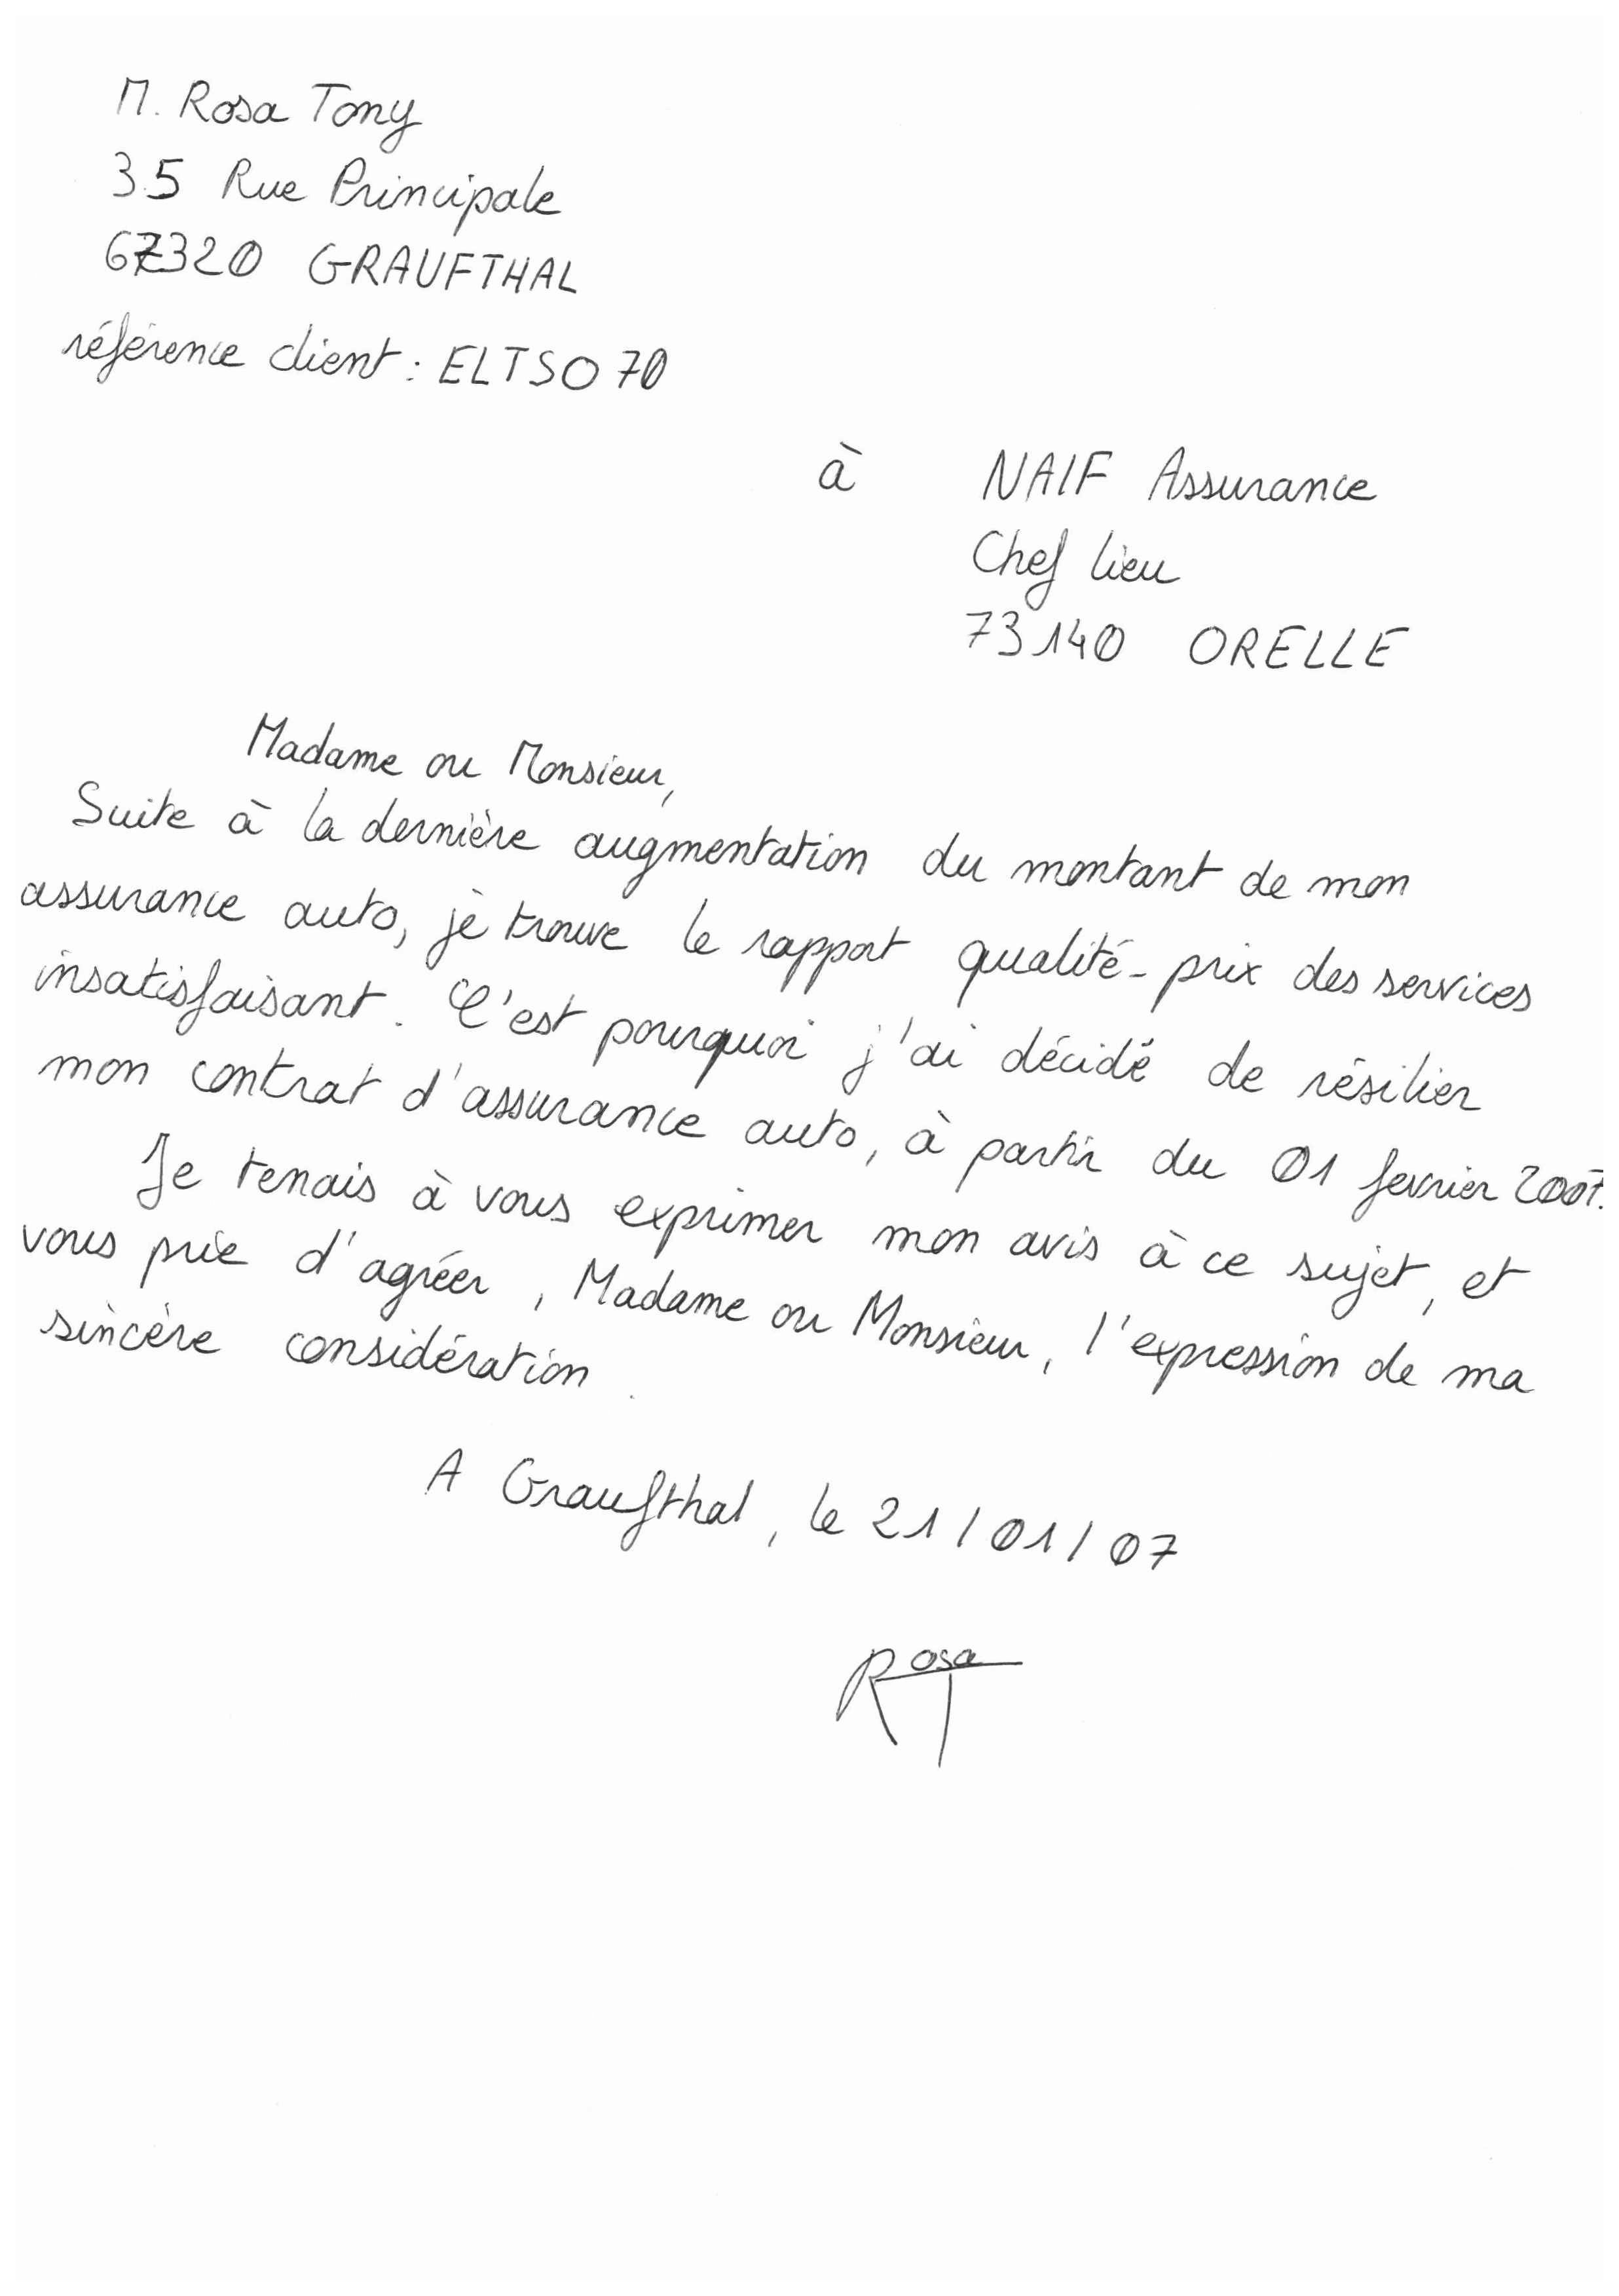 M. Rosa Tony
35 Rue Principale
67320 GRAUFTHAL
référence client : ELTSO70
à NAIF Assurance
Chef lieu
73140 ORELLE
Madame ou Monsieur,
Suite à la dernière augmentation du montant de mon
assurance auto, je trouve le rapport qualité-prix des services
insatisfaisant. C'est pourquoi j'ai décidé de résilier
mon contrat d'assurance auto, à partir du 01 fevrier 2007.
Je tenais à vous exprimer mon avis à ce sujet, et
vous prie d'agréer, Madame ou Monsieur, l'expression de ma
sincère considération.
A Graufthal, le 21/01/07
Rosa T